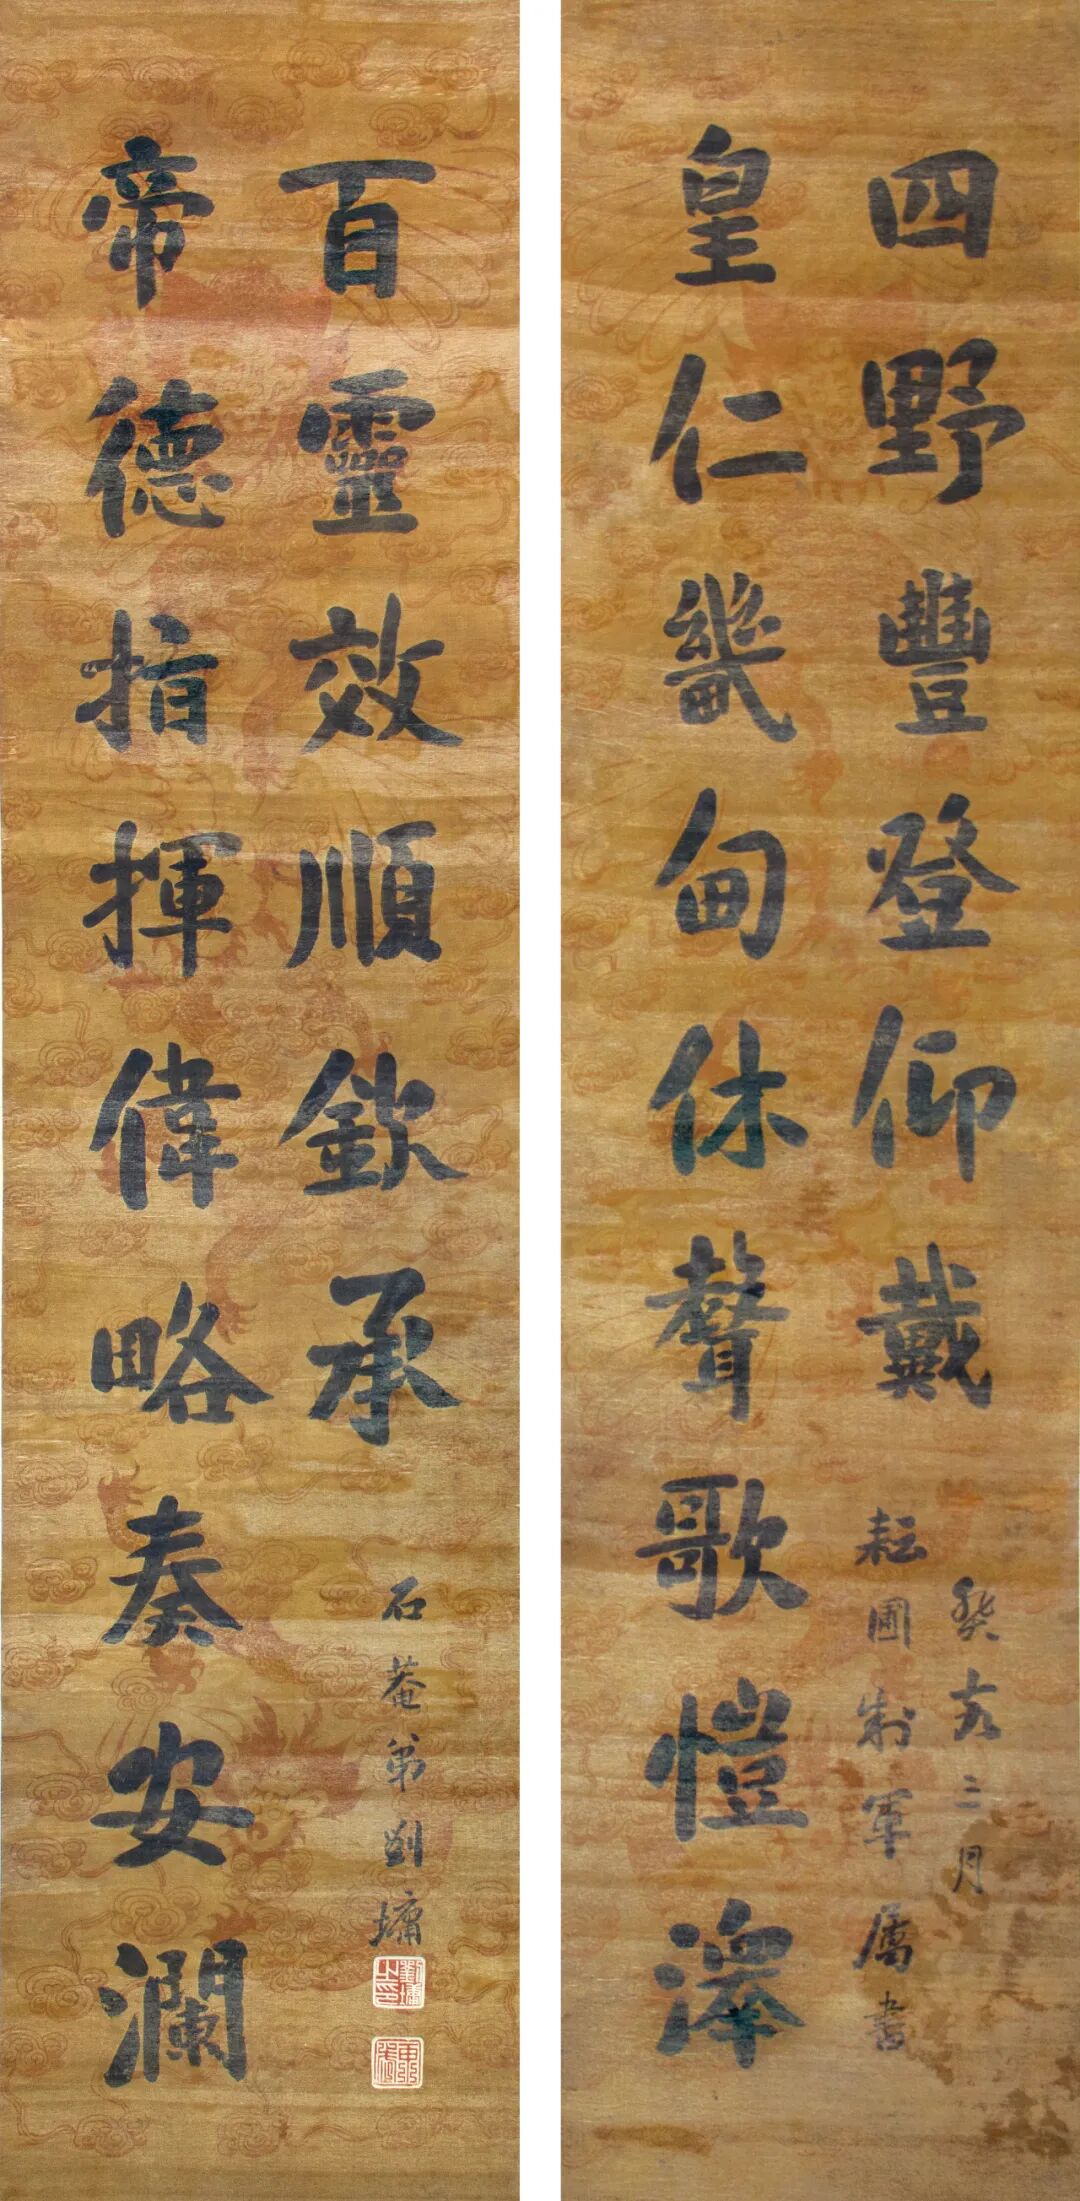 四野豐登仰戴
皇仁畿甸休聲歌愷澤
癸亥二月
耘圃制軍屬書
百靈效順欽承
帝德指揮偉略奏安瀾
石菴弟劉墉
劉墉之印